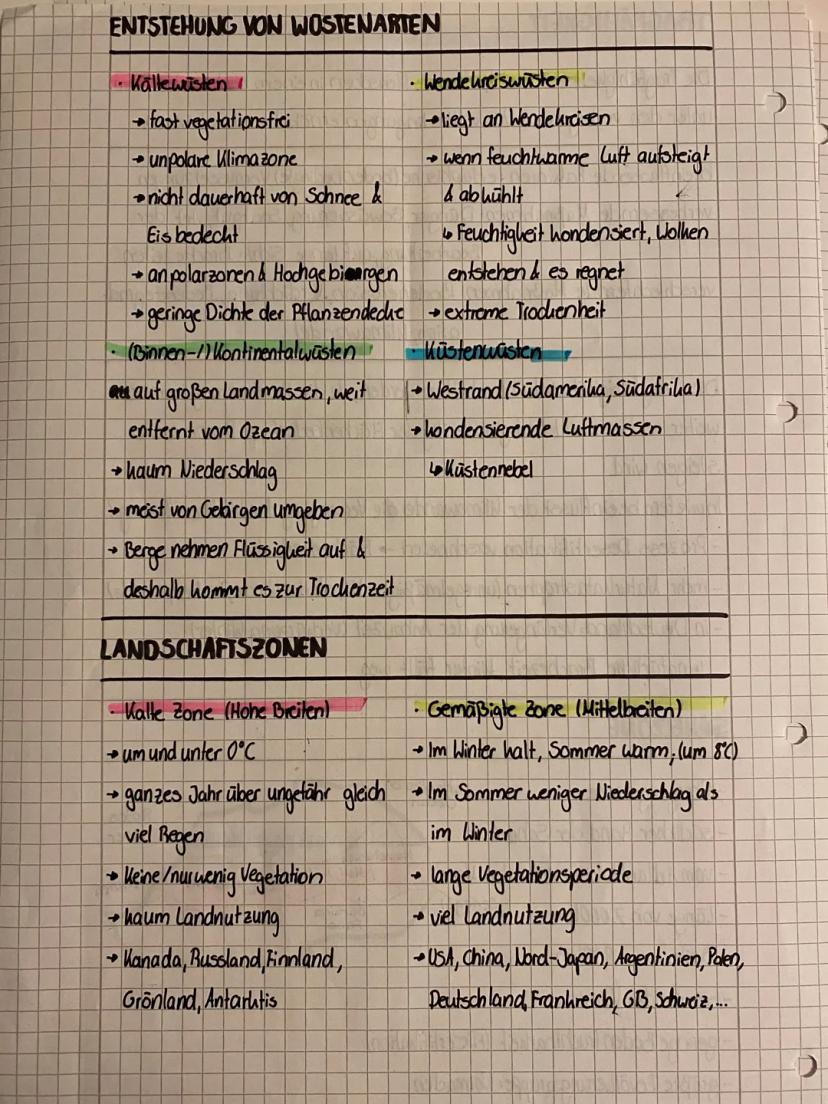 ENTSTEHUNG VON WÜSTENARTEN
· Kältewüsten
→ fast vegetationsfrei
→ unpolare Klimazone
→ nicht dauerhaft von Schnee &
Eis bedeckt
→ an polarzonen & Hochgebirgen
→ geringe Dichte der Pflanzendecke
· (Binnen-/) Kontinentalwüsten
auf großen Landmassen, weit
entfernt vom Ozean
→ kaum Niederschlag
→ meist von Gebirgen umgeben
→ Berge nehmen Flüssigkeit auf &
deshalb kommt es zur Trockenzeit
· Wendekreiswüsten
→ liegt an Wendekreisen
→ wenn feuchtwarme Luft aufsteigt
& abkühlt
↳ Feuchtigkeit kondensiert, Wolken
entstehen & es regnet
→ extreme Trockenheit
· Küstenwüsten
→ Westrand (Südamerika, Südafrika)
→ kondensierende Luftmassen
↳ Küstennebel
LANDSCHAFTSZONEN
· Kalte Zone (Hohe Breiten)
→ um und unter 0°C
→ ganzes Jahr über ungefähr gleich
viel Regen
→ Keine/nur wenig Vegetation
→ kaum Landnutzung
→ Kanada, Russland, Finnland,
Grönland, Antarktis
· Gemäßigte Zone (Mittelbreiten)
→ Im Winter kalt, Sommer warm, (um 8°C)
→ Im Sommer weniger Niederschlag als
im Winter
→ lange Vegetationsperiode
→ viel Landnutzung
→ USA, China, Nord-Japan, Argentinien, Polen,
Deutschland, Frankreich, GB, Schweiz,...